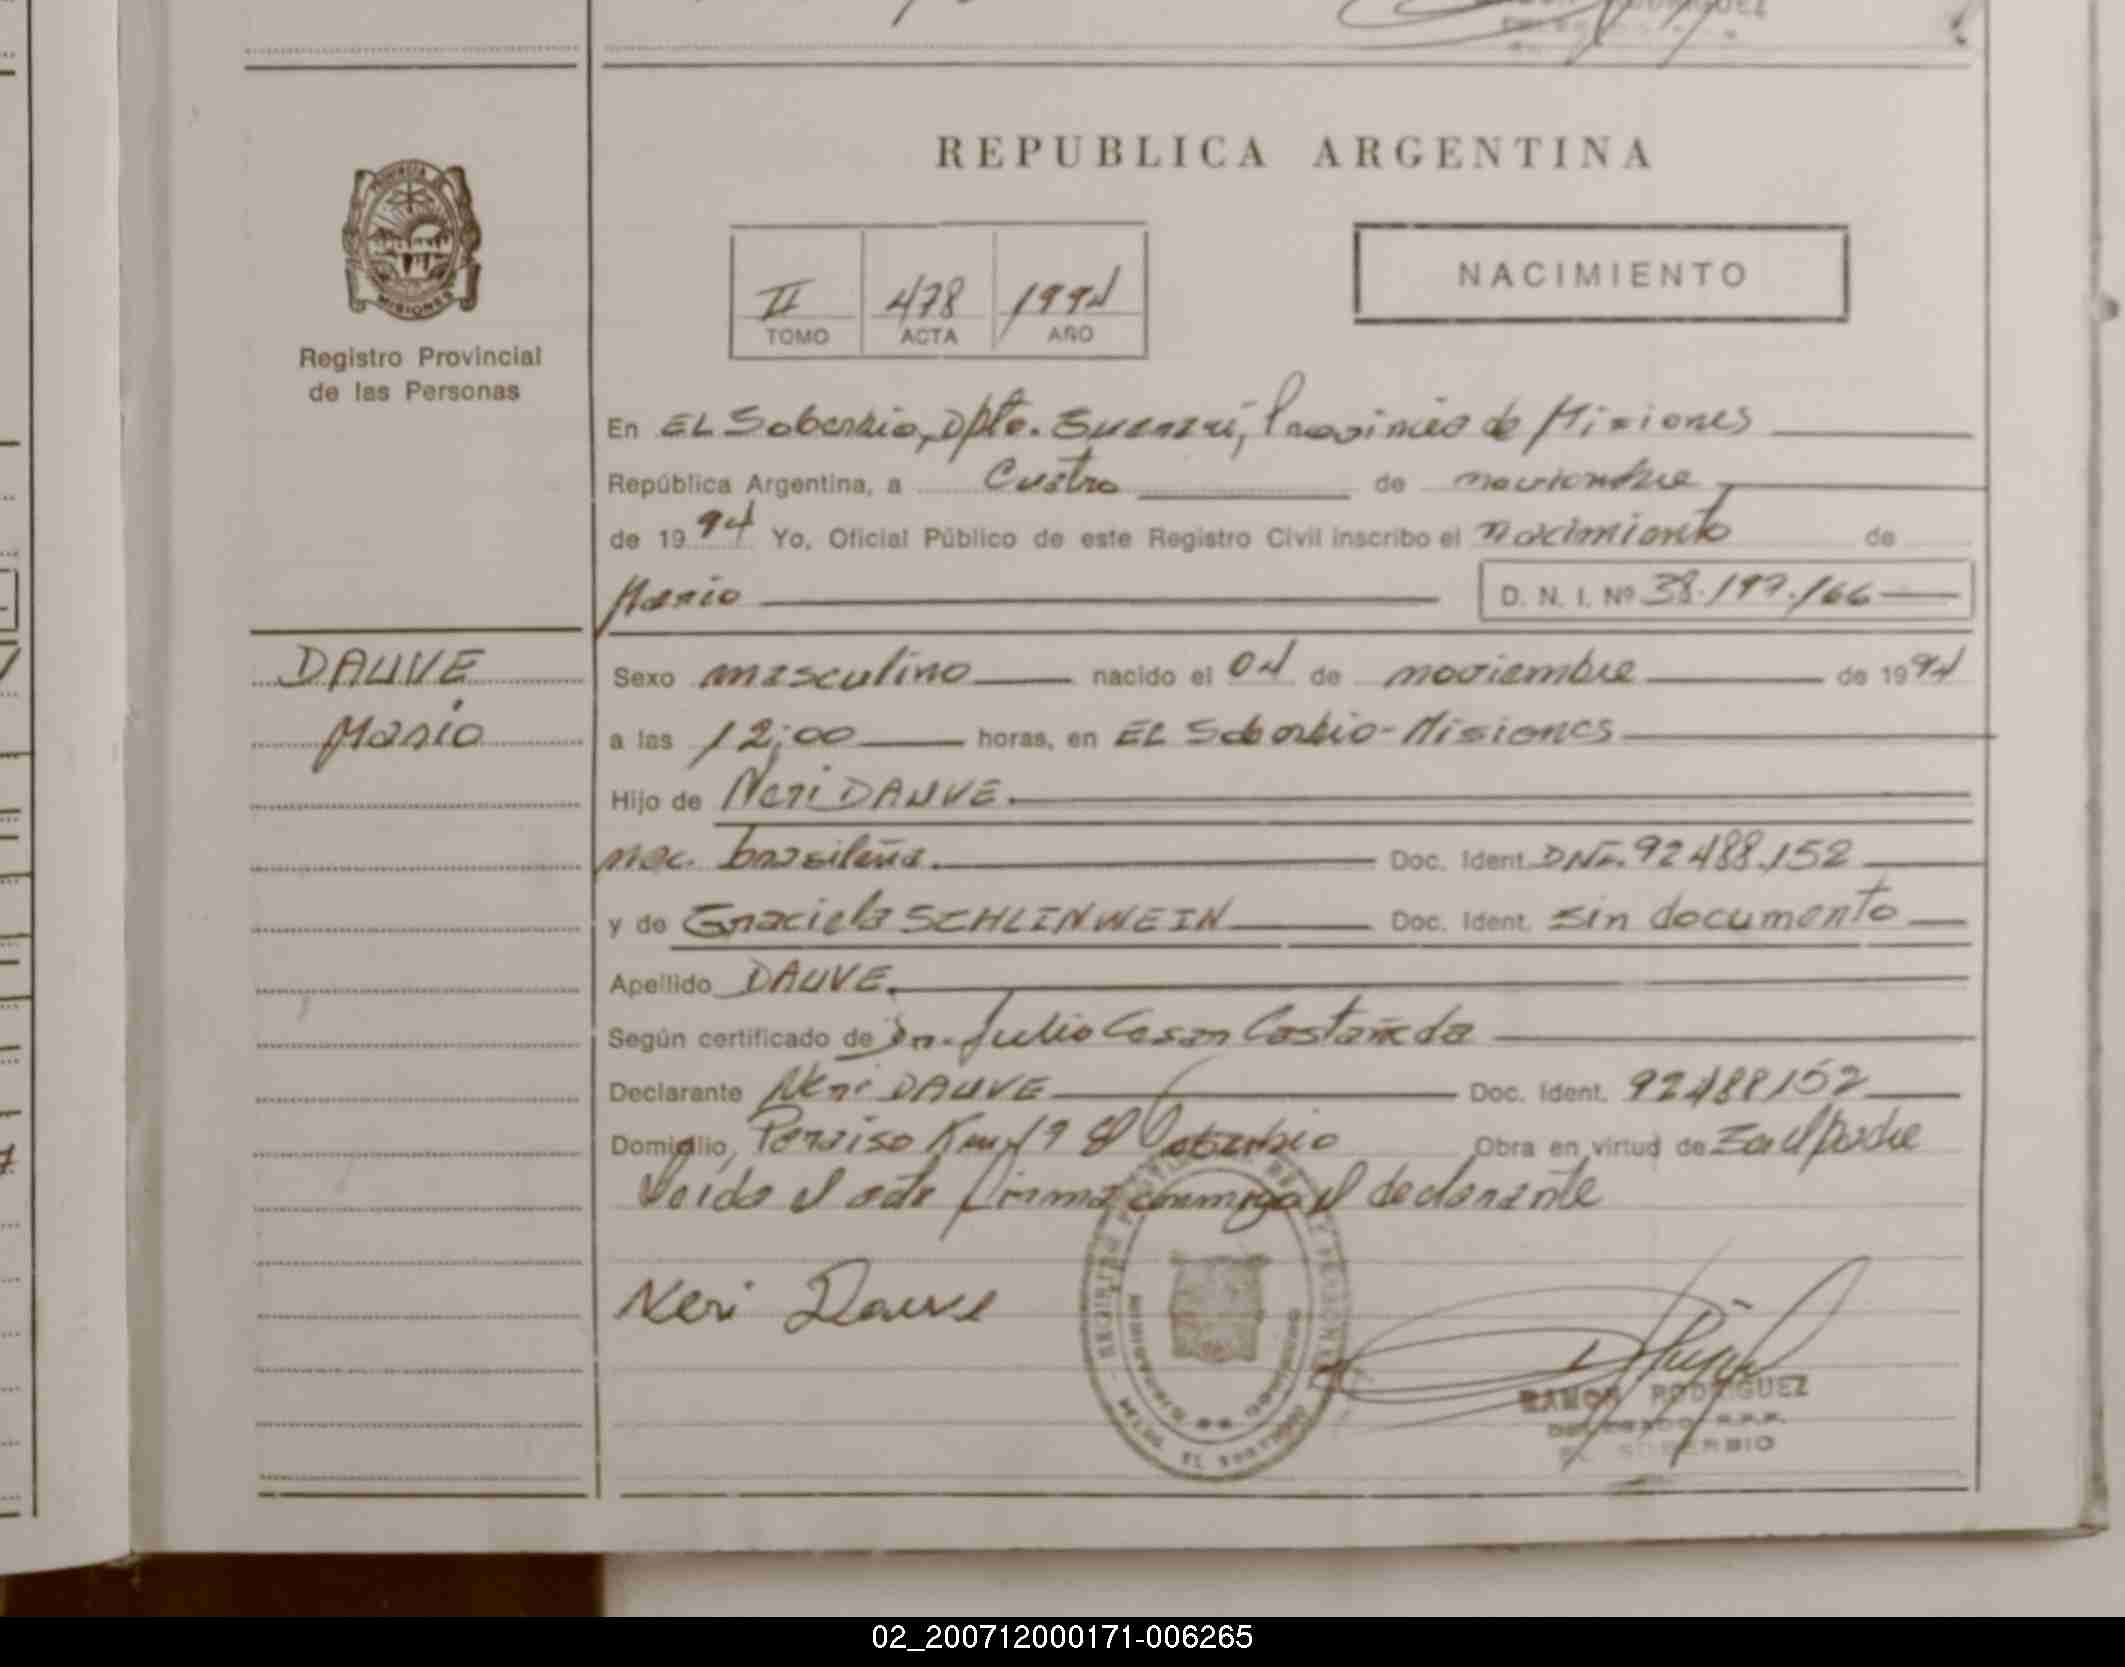 REPUBLICA ARGENTINA
PROVINCIA DE
MISIONES
Registro Provincial
de las Personas
II 478 1994
TOMO ACTA AÑO
NACIMIENTO
En EL Soberbio, Dpto. Guaraní, Provincia de Misiones
República Argentina, a Cuatro de noviembre
de 1994 Yo, Oficial Público de este Registro Civil inscribo el nacimiento de
Mario D. N. I. Nº 38.197.166
DAUVE
Mario
Sexo masculino nacido el 04 de noviembre de 1994
a las 12;00 horas, en EL Soberbio - Misiones
Hijo de Neri DAUVE.
nac. brasileña. Doc. Ident. DNI. 92488.152
y de Graciela SCHLINWEIN Doc. Ident. sin documento
Apellido DAUVE.
Según certificado de Dr. Julio Cesar Castañeda
Declarante Neri DAUVE Doc. Ident. 92488152
Domicilio, Peraiso Km 19 El Soberbio Obra en virtud de Ser el padre
Leida el acta firma conmigo el declarante
Neri Dauve
RAMON RODRIGUEZ
EL SOBERBIO
02_200712000171-006265